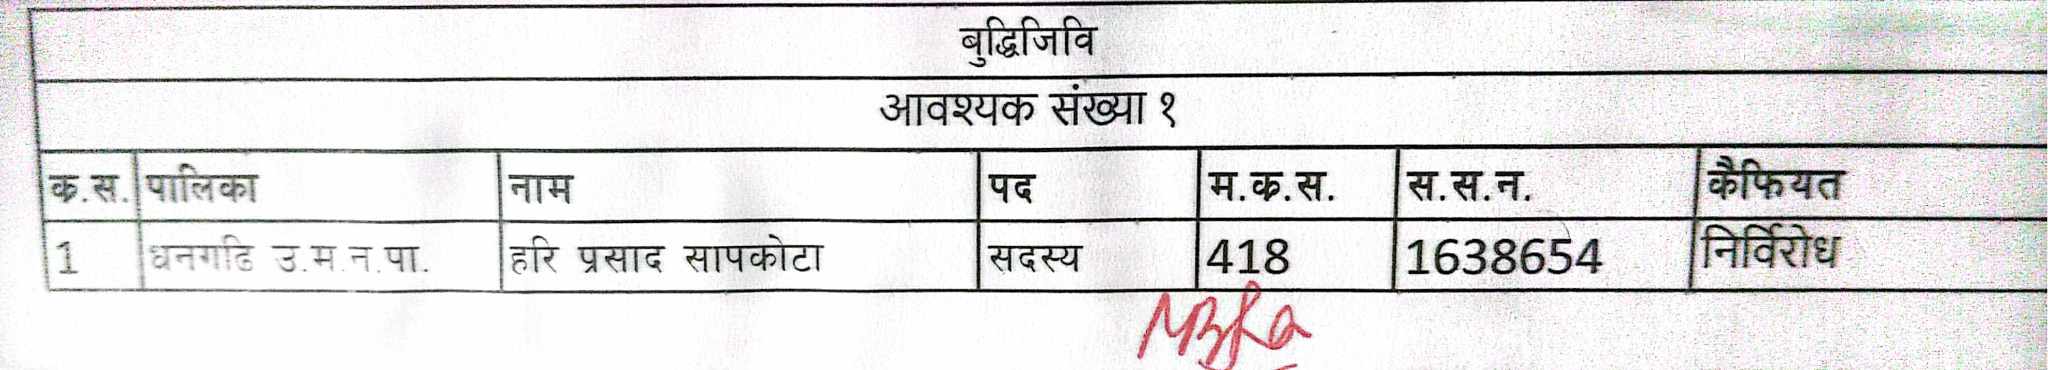 बुद्धिजिवि
आवश्यक संख्या १
क.स. पालिका नाम पद म.क.स. स.स.न. कैफियत
1 धनगढि उ.म.न.पा. हरि प्रसाद सापकोटा सदस्य 418 1638654 निर्विरोध